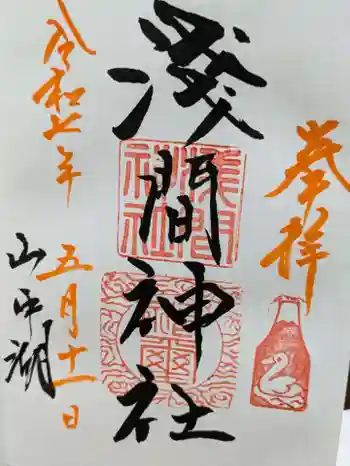 奉拝
淺間神社
淺間社
令和七年
五月十一日
山中湖